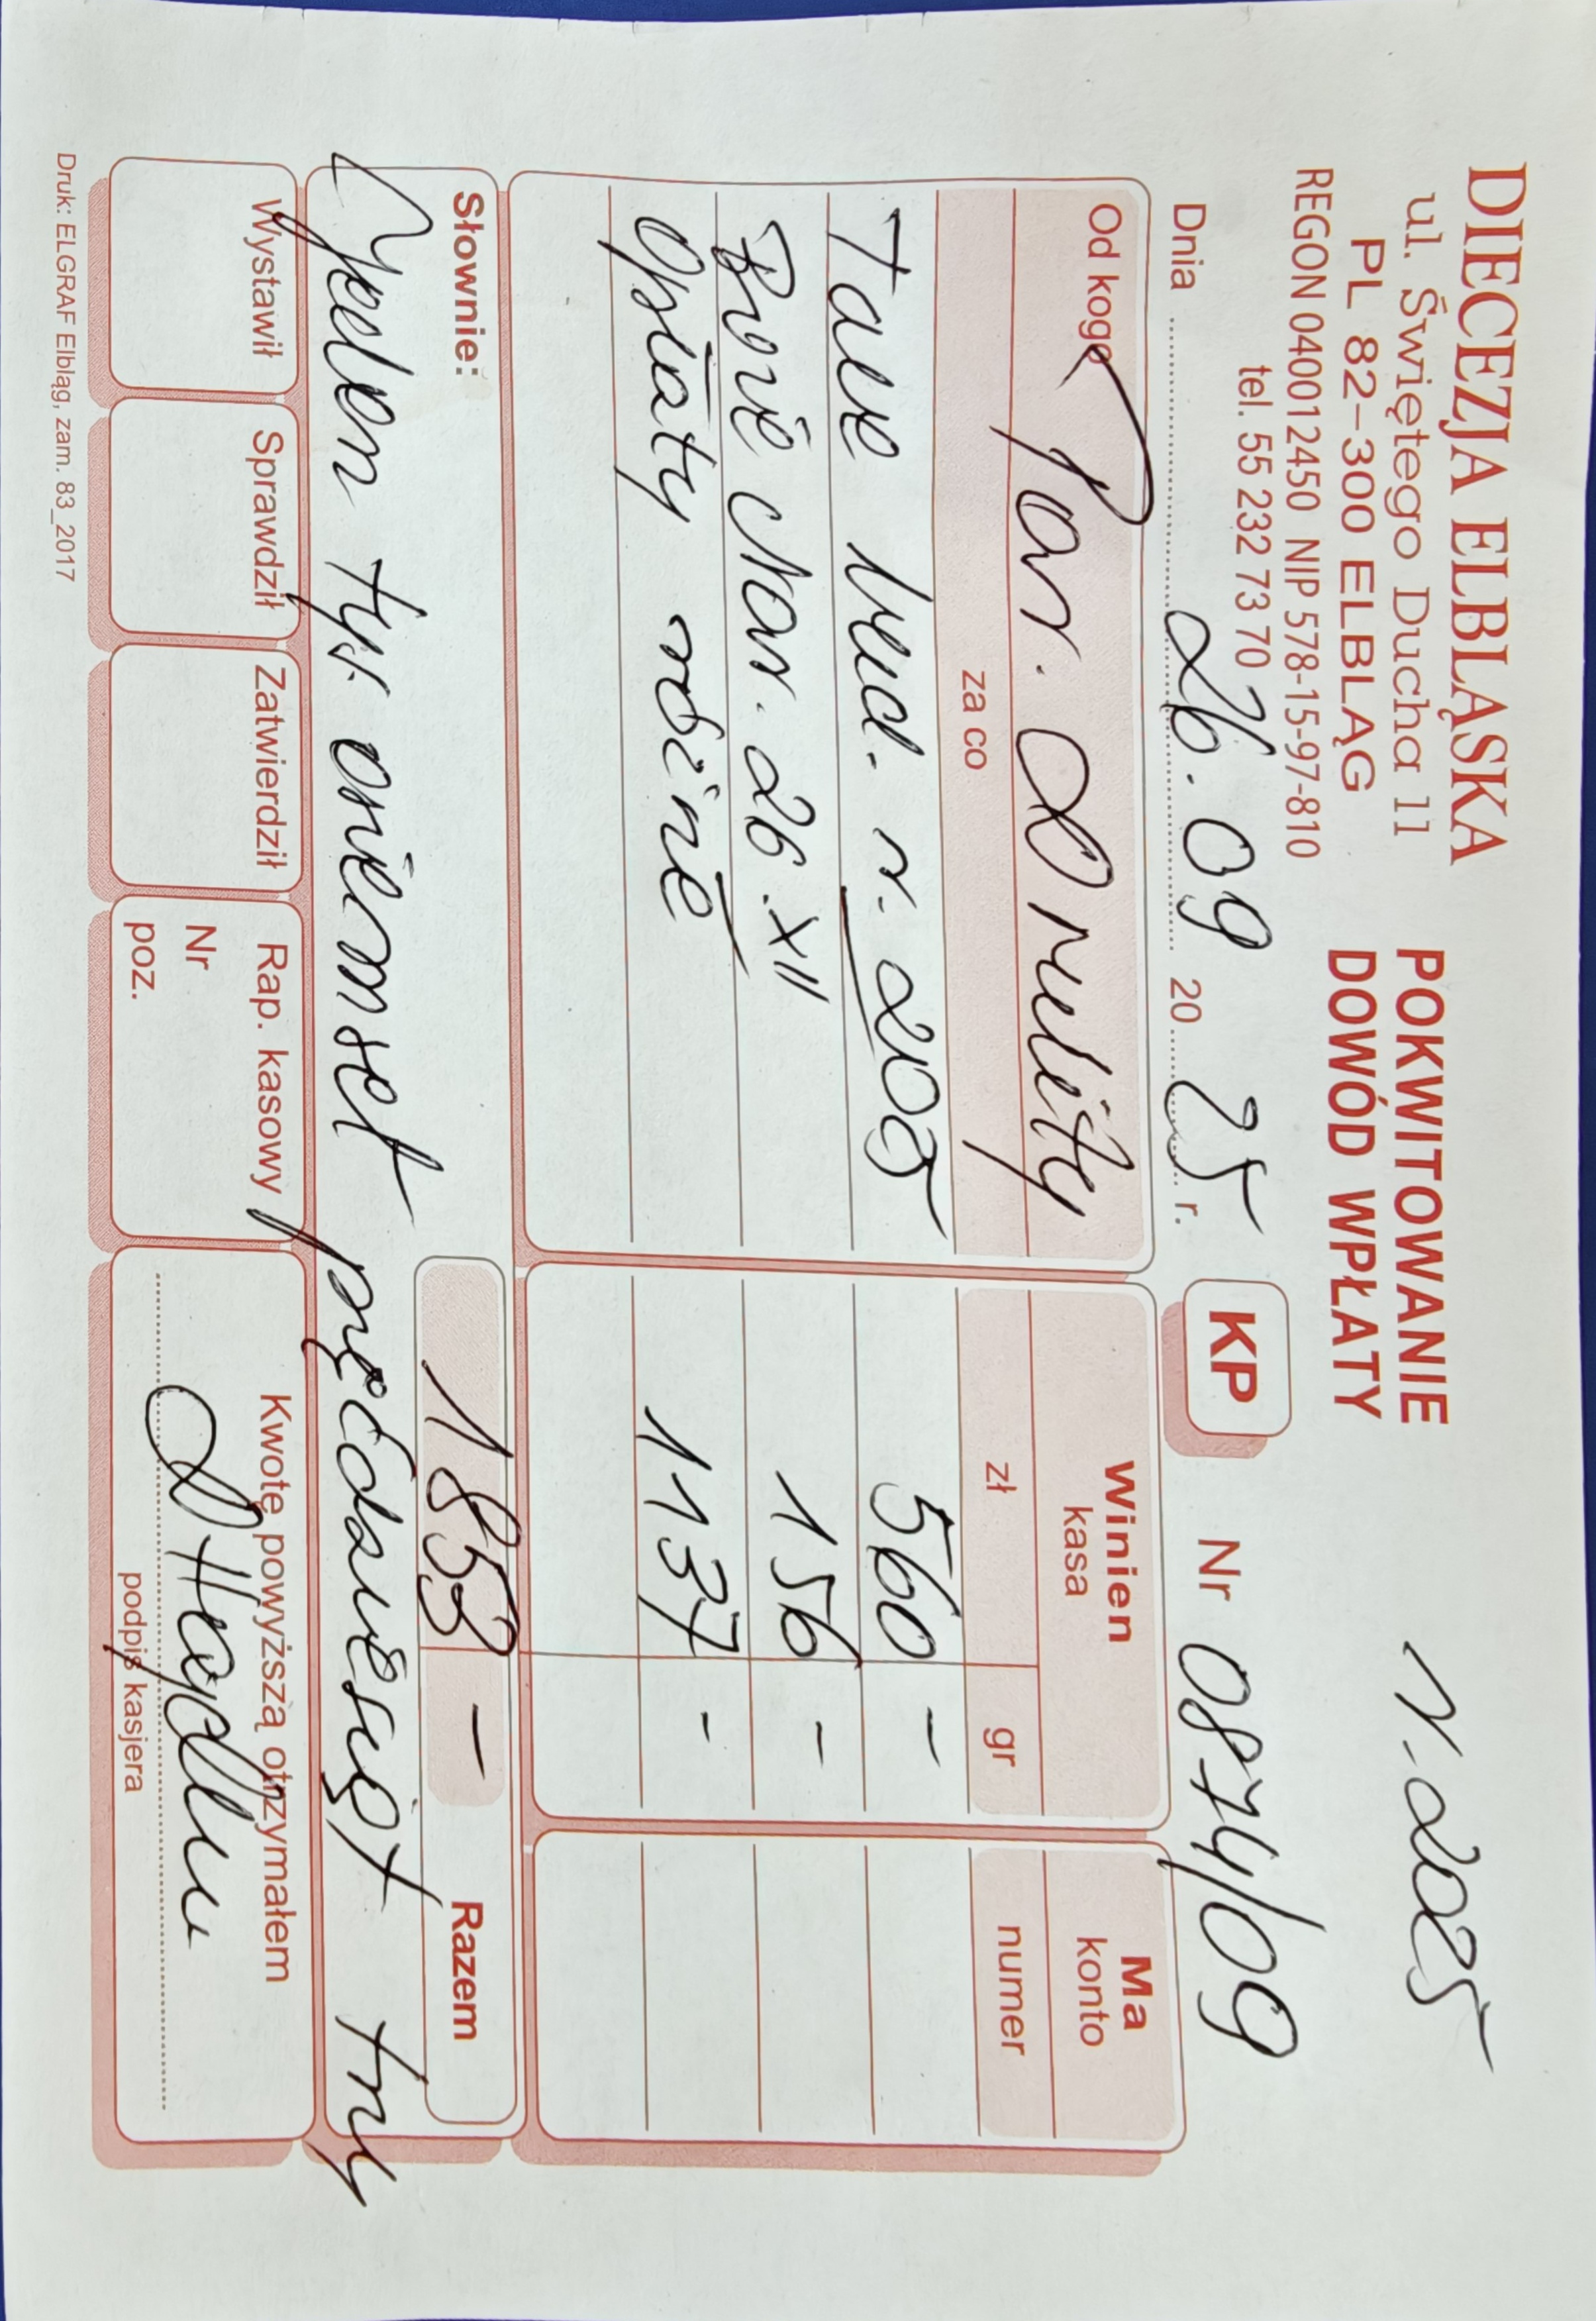 DIECEZJA ELBLĄSKA
ul. Świętego Ducha 11
PL 82-300 ELBLĄG
REGON 040012450 NIP 578-15-97-810
tel. 55 232 73 70
POKWITOWANIE
DOWÓD WPŁATY
r. 2025
Dnia 26.09 20 25 r.
KP
Nr 0874/09
Od kogo Par.
za co
Winien
kasa
zł gr
Ma
konto
numer
r. 2005 560 -
Boże Nar. 26.XII 156 -
Opłaty różne 1137 -
Słownie:
1853 -
Razem
Jeden tys. osiemset pięćdziesiąt trzy
Wystawił
Sprawdził
Zatwierdził
Rap. kasowy
Nr
poz.
Kwotę powyższą otrzymałem
podpis kasjera
Druk: ELGRAF Elbląg, zam. 83_2017